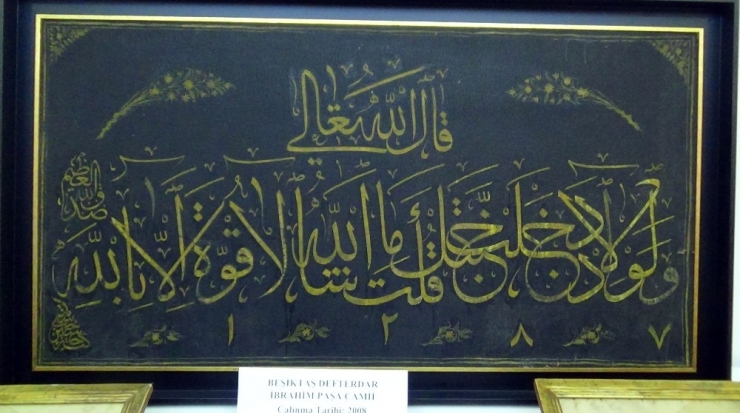 قال الله تعالى
ولولا اذ دخلت جنتك قلت ما شاء الله لا قوة الا بالله
صدق الله العظيم
١٢٨٧
BEŞİKTAŞ DEFTERDAR
İBRAHİM PAŞA CAMİİ
Çalınma Tarihi: 2008